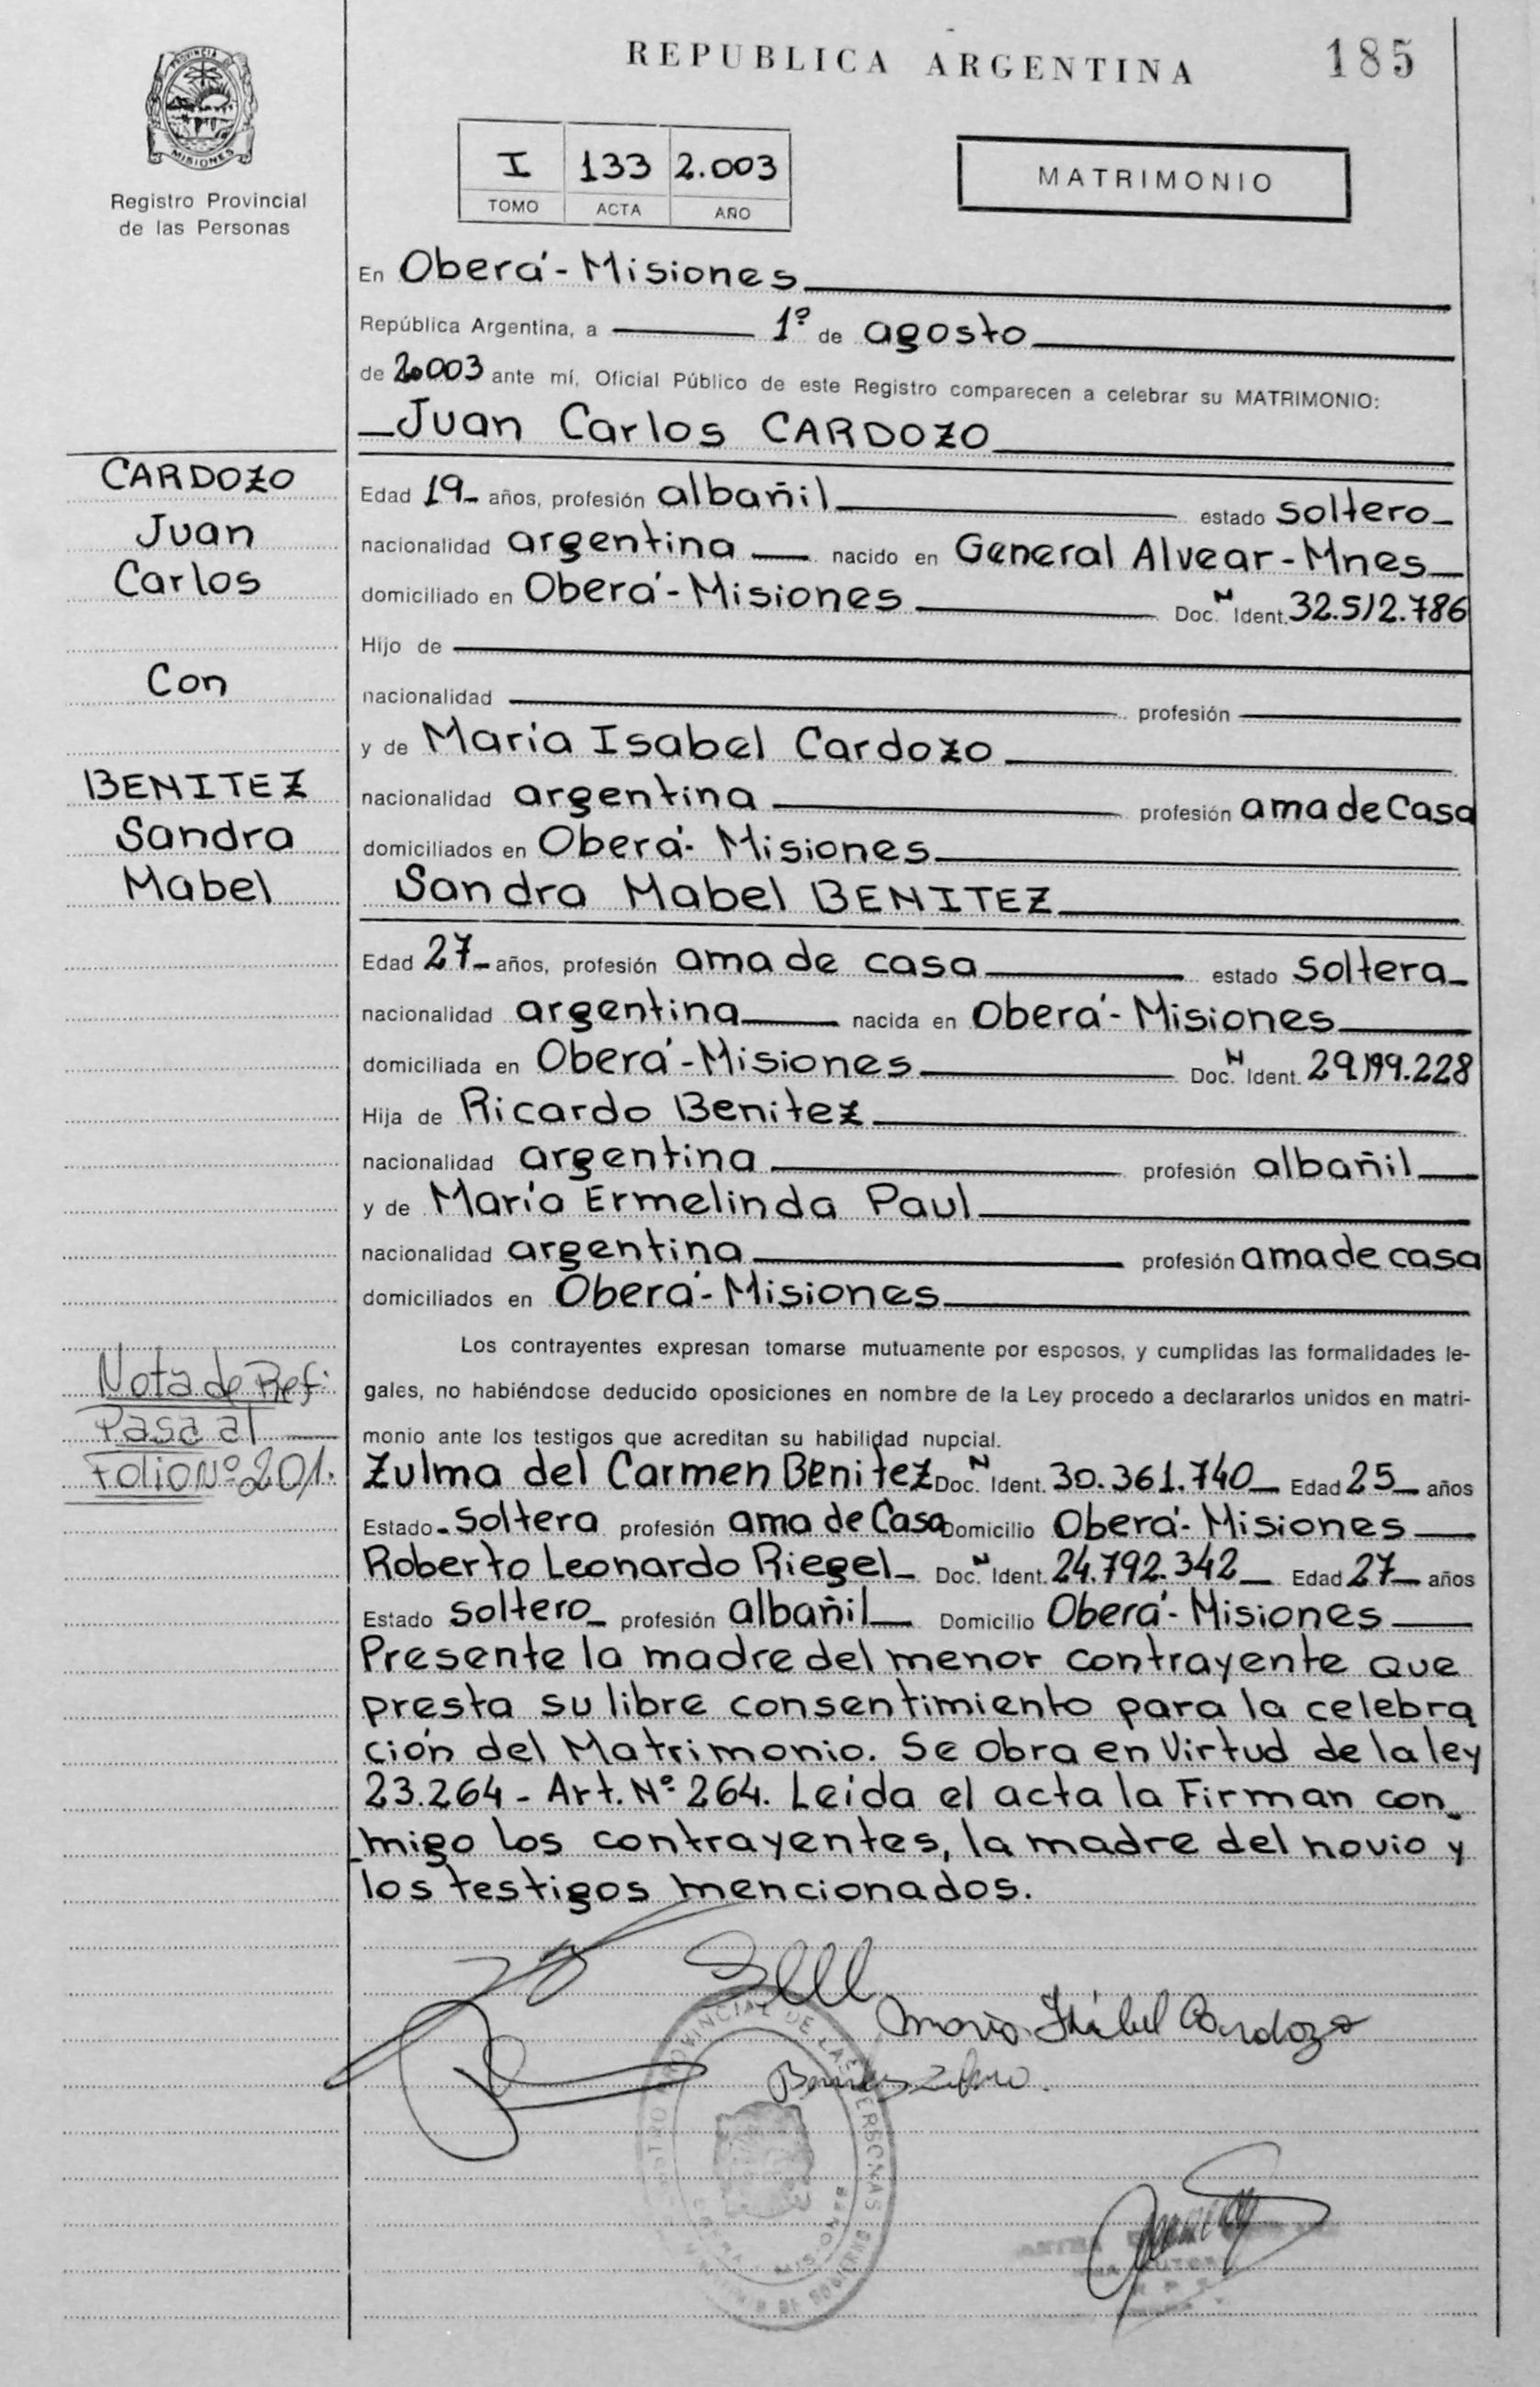 REPUBLICA ARGENTINA
185
MISIONES
Registro Provincial
de las Personas
I 133 2.003
TOMO ACTA AÑO
MATRIMONIO
En Oberá-Misiones
República Argentina, a 1º de agosto
de 2.003 ante mí, Oficial Público de este Registro comparecen a celebrar su MATRIMONIO:
Juan Carlos CARDOZO
CARDOZO
Juan
Carlos
Con
BENITEZ
Sandra
Mabel
Edad 19 años, profesión albañil estado soltero
nacionalidad argentina nacido en General Alvear-Mnes
domiciliado en Oberá-Misiones Doc. N Ident. 32.512.786
Hijo de
nacionalidad profesión
y de María Isabel Cardozo
nacionalidad argentina profesión ama de Casa
domiciliados en Oberá-Misiones
Sandra Mabel BENITEZ
Edad 27 años, profesión ama de casa estado soltera
nacionalidad argentina nacida en Oberá-Misiones
domiciliada en Oberá-Misiones Doc. N Ident. 29.199.228
Hija de Ricardo Benitez
nacionalidad argentina profesión albañil
y de María Ermelinda Paul
nacionalidad argentina profesión ama de casa
domiciliados en Oberá-Misiones
Los contrayentes expresan tomarse mutuamente por esposos, y cumplidas las formalidades le-
gales, no habiéndose deducido oposiciones en nombre de la Ley procedo a declararlos unidos en matri-
monio ante los testigos que acreditan su habilidad nupcial.
Nota de Ref:
Pasa al
Folio Nº 201.
Zulma del Carmen Benitez Doc. N Ident. 30.361.740 Edad 25 años
Estado soltera profesión ama de Casa Domicilio Oberá-Misiones
Roberto Leonardo Riegel Doc. N Ident. 24.792.342 Edad 27 años
Estado soltero profesión albañil Domicilio Oberá-Misiones
Presente la madre del menor contrayente que
presta su libre consentimiento para la celebra
ción del Matrimonio. Se obra en Virtud de la ley
23.264 - Art. Nº 264. Leída el acta la Firman con-
migo los contrayentes, la madre del novio y
los testigos mencionados.
María Isabel Cardozo